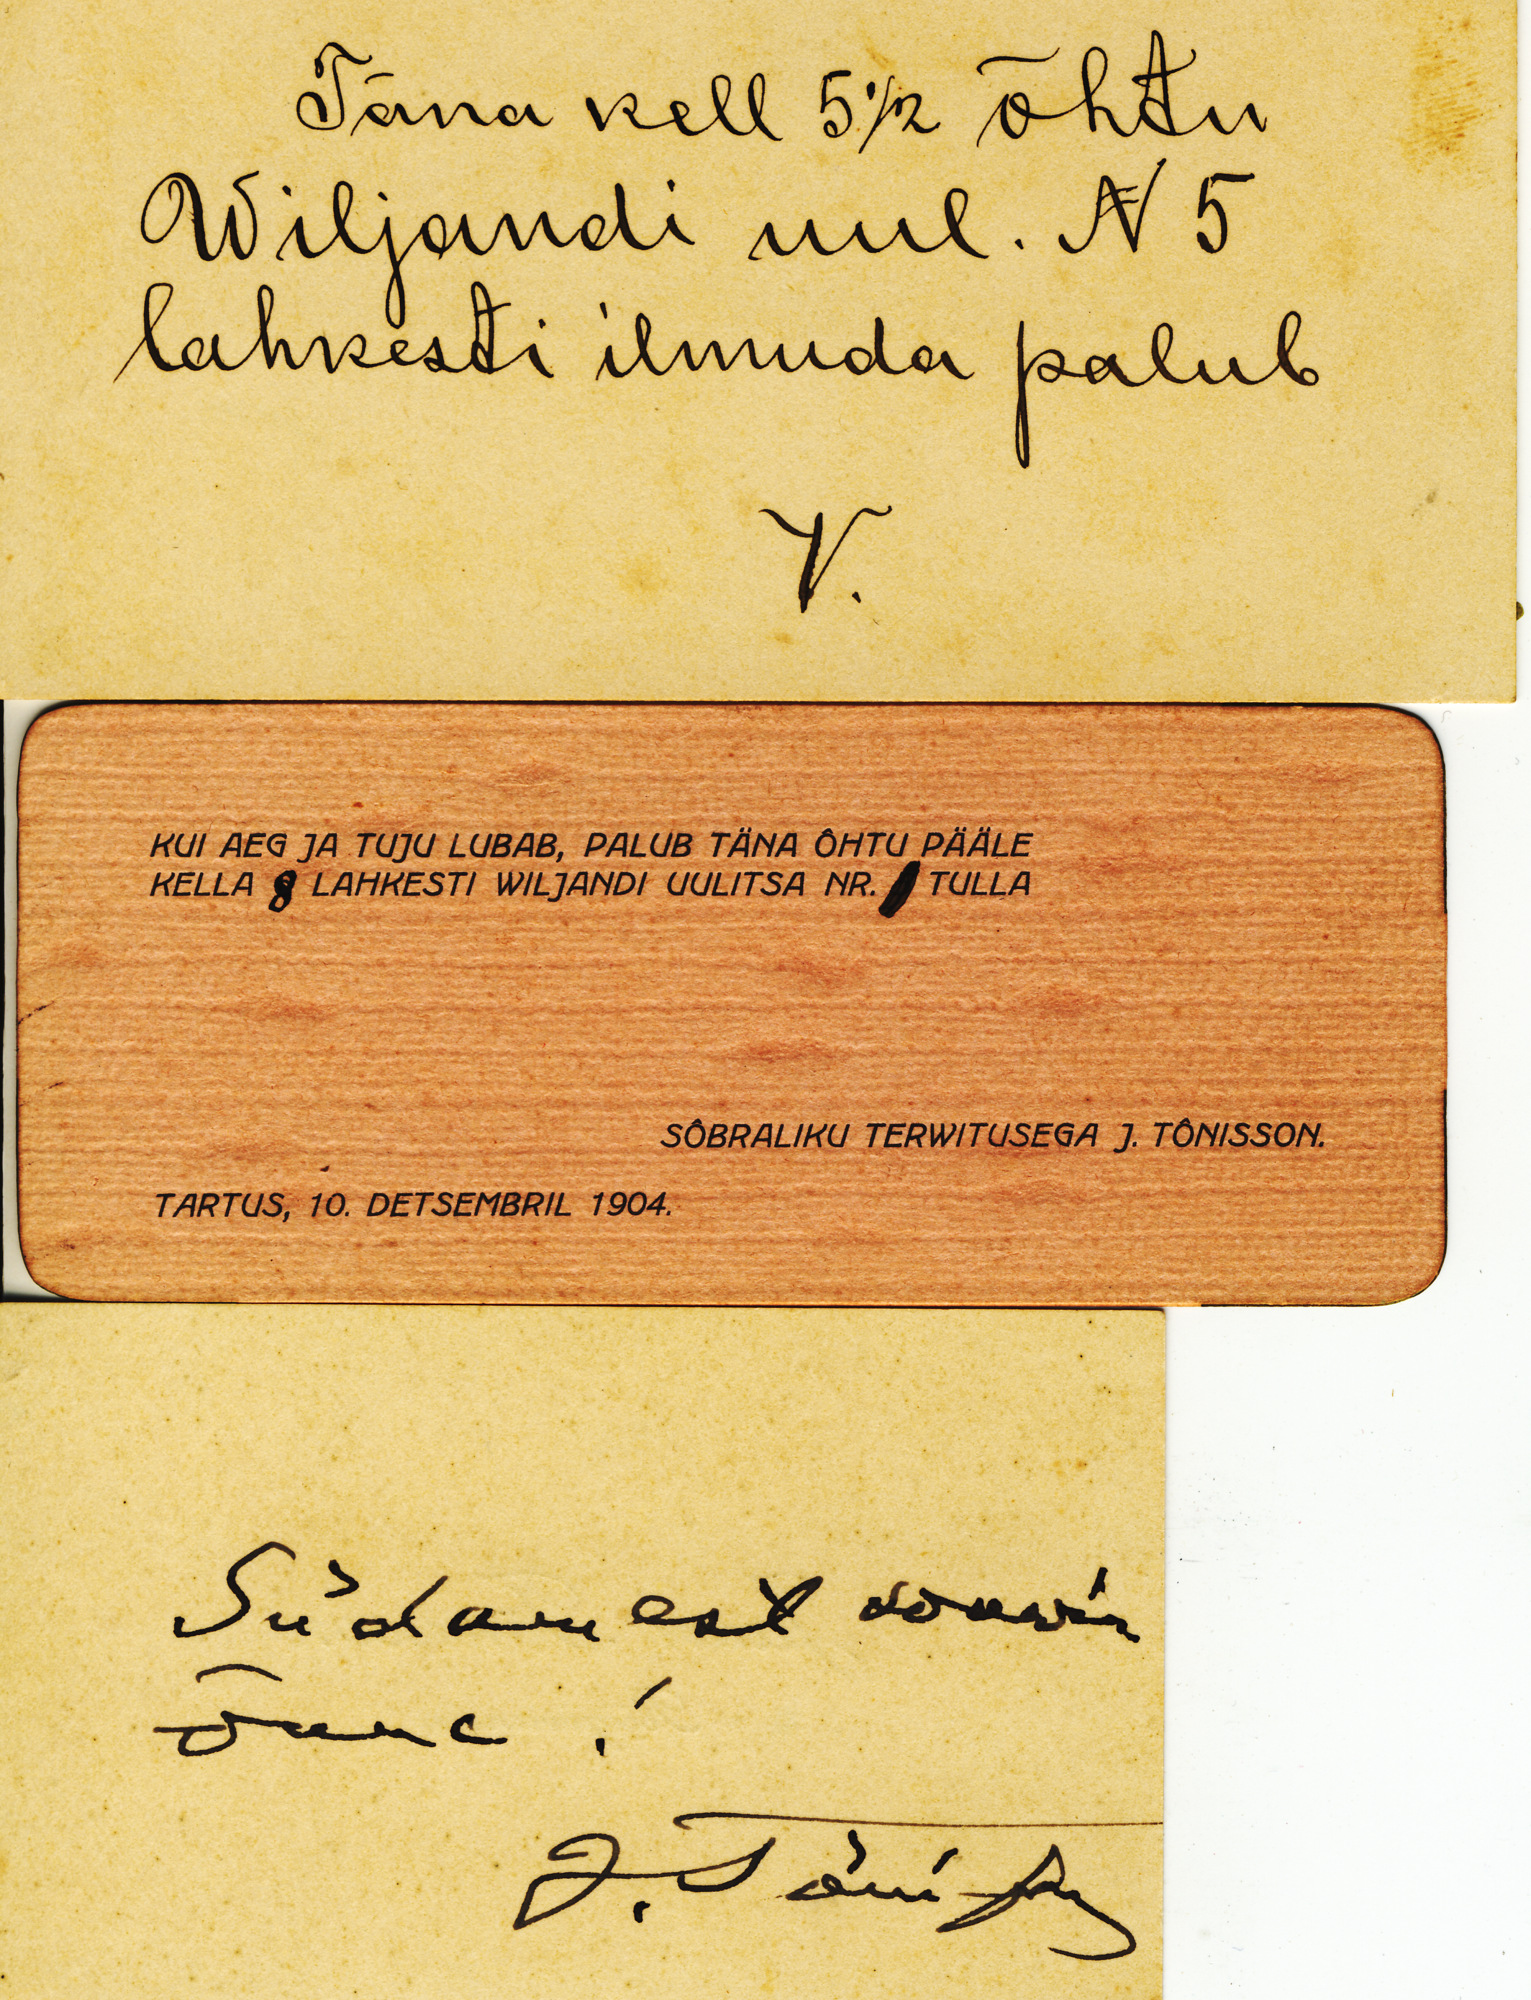 Täna kell 5 1/2 õhtu
Wiljandi uul. N 5
lahkesti ilmuda palub
V.
KUI AEG JA TUJU LUBAB, PALUB TÄNA ÔHTU PÄÄLE
KELLA 8 LAHKESTI WILJANDI UULITSA NR. TULLA
SÔBRALIKU TERWITUSEGA J. TÔNISSON.
TARTUS, 10. DETSEMBRIL 1904.
Südamest soowin
õnne!
J. Tõnisson